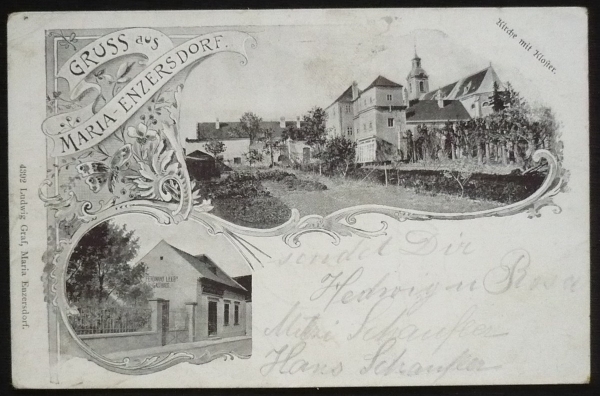 GRUSS aus
MARIA-ENZERSDORF.
Kirche mit Kloster.
4392 Ludwig Graf, Maria Enzersdorf.
FERDINAND
sendet Dir
Mitzi Schaufler
Hans Schaufler